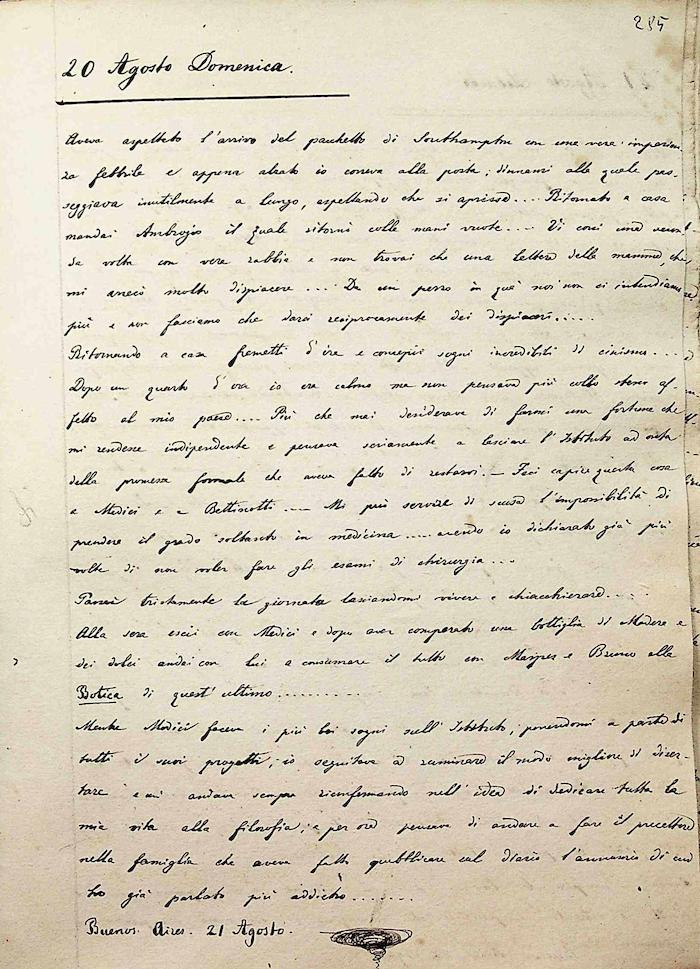 285
20 Agosto Domenica.
Aveva aspettato l'arrivo del pacchetto di Southampton con una vera impazien-
za febbrile e appena alzato io correva alla posta; dinnanzi alla quale pas-
seggiava inutilmente a lungo, aspettando che si aprisse.... Ritornato a casa
mandai Ambrogio il quale ritornò colle mani vuote.... Vi corsi una secon-
da volta con vera rabbia e non trovai che una lettera della mamma che
mi arrecò molto dispiacere.... Da un pezzo in quà noi non ci intendiamo
più e non facciamo che darci reciprocamente dei dispiaceri.....
Ritornando a casa fremetti d'ira e concepii sogni incredibili di cinismo....
Dopo un quarto d'ora io era calmo ma non pensava più collo stesso af-
fetto al mio paese.... Più che mai desiderava di farmi una fortuna che
mi rendesse indipendente e pensava seriamente a lasciare l'Istituto ad onta
della promessa formale che aveva fatto di restarvi.— Feci capire questa cosa
a Medici e a Bettinotti.... Mi può servire di scusa l'impossibilità di
prendere il grado soltanto in medicina.... avendo io dichiarato già più
volte di non voler fare gli esami di chirurgia....
Passai tristamente la giornata lasciandomi vivere e chiacchierare.....
Alla sera escii con Medici e dopo aver comperato una bottiglia di Madera e
dei dolci andai con lui a consumare il tutto con Marpes e Bruno alla
Botica di quest'ultimo..........
Mentre Medici faceva i più bei sogni sull'Istituto, ponendomi a parte di
tutti i suoi progetti, io seguitava a ruminare il modo migliore di diser-
tare e mi andava sempre riconfermando nell'idea di dedicare tutta la
mia vita alla filosofia; e per ora pensava di andare a fare il precettore
nella famiglia che aveva fatto pubblicare sul diario l'annuncio di cui
ho già parlato più addietro.......
Buenos Aires. 21 Agosto.